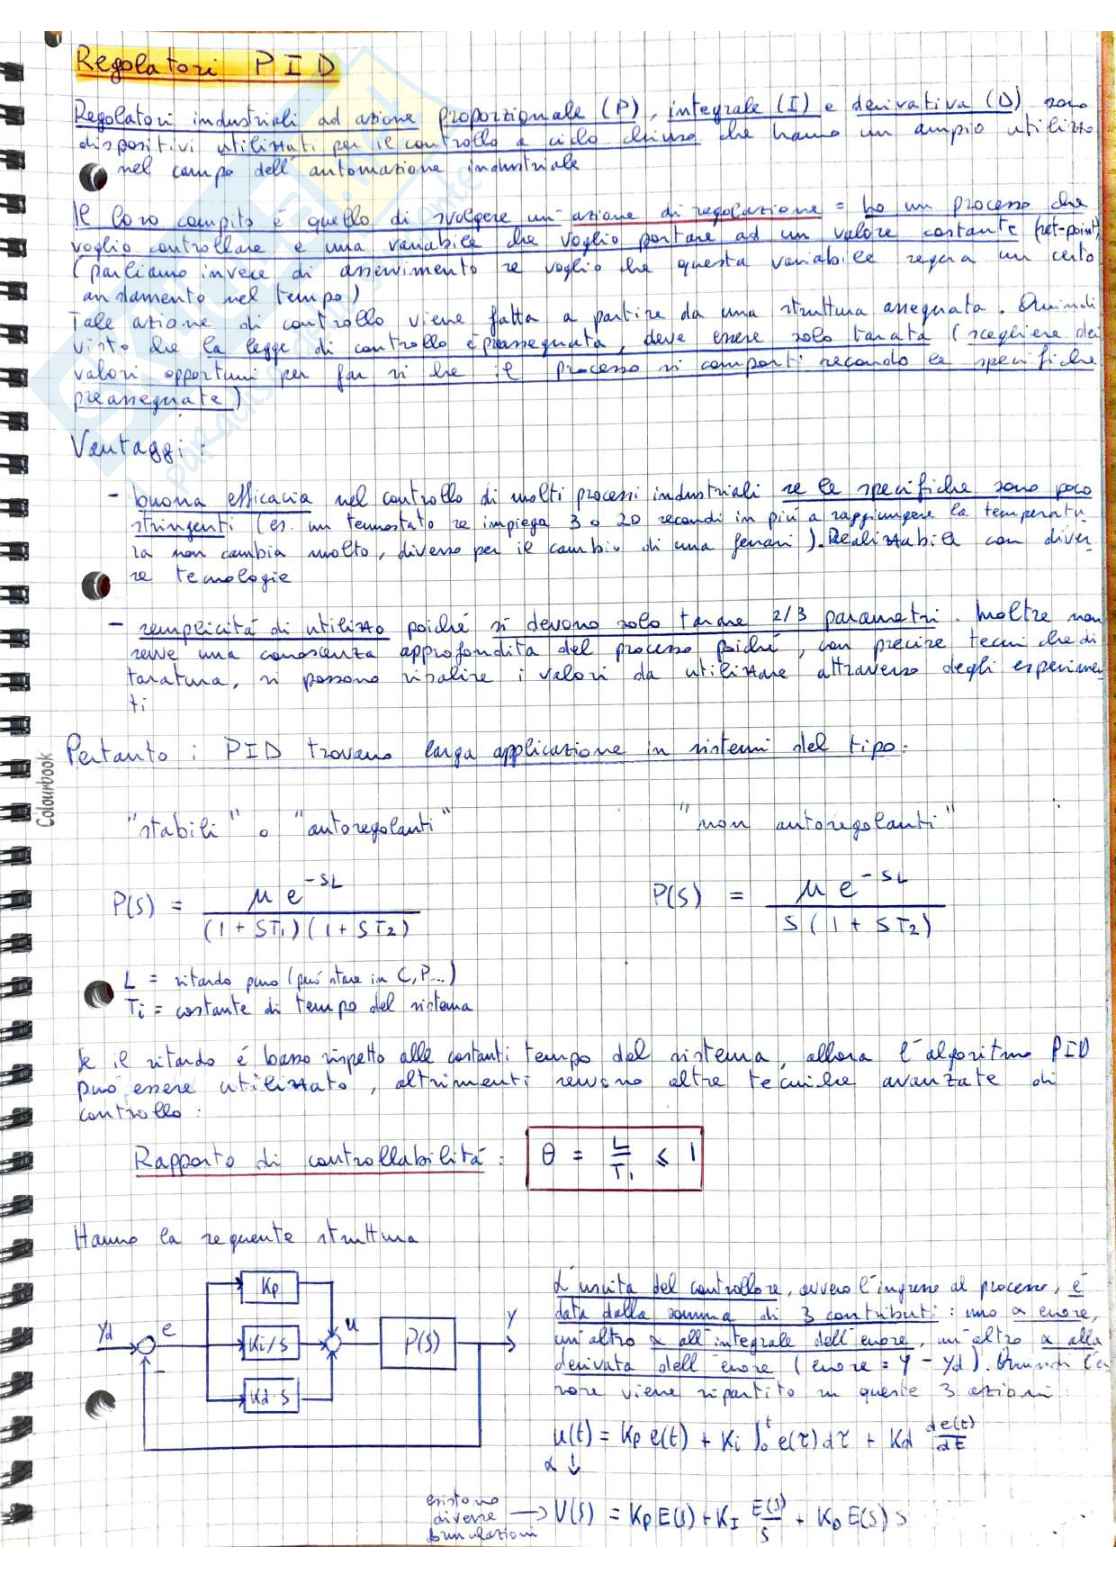 Regolatori PID
Regolatori industriali ad azione proporzionale (P), integrale (I) e derivativa (D) sono
dispositivi utilizzati per il controllo a ciclo chiuso che hanno un ampio utilizzo
nel campo dell'automazione industriale
Il loro compito è quello di svolgere un'azione di regolazione = ho un processo che
voglio controllare e una variabile che voglio portare ad un valore costante (set-point)
(parliamo invece di asservimento se voglio che questa variabile segua un certo
andamento nel tempo)
Tale azione di controllo viene fatta a partire da una struttura assegnata. Quindi
visto che la legge di controllo è preassegnata, deve essere solo tarata (scegliere dei
valori opportuni per far sì che il processo si comporti secondo le specifiche
preassegnate)
Vantaggi:
- buona efficacia nel controllo di molti processi industriali se le specifiche sono poco
stringenti (es. un termostato se impiega 3 o 20 secondi in più a raggiungere la temperatu
ra non cambia molto, diverso per il cambio di una ferrari). Realizzabili con diver
se tecnologie
- semplicità di utilizzo poiché si devono solo tarare 2/3 parametri. Inoltre non
serve una conoscenza approfondita del processo poiché, con precise tecniche di
taratura, si possono risalire i valori da utilizzare attraverso degli esperimen
ti
Colourbook
Pertanto: PID trovano larga applicazione in sistemi del tipo:
"stabili" o "autoregolanti" "non autoregolanti"
P(s) = μ e^{-sL} / (1 + sT₁)(1 + sT₂) P(s) = μ e^{-sL} / s(1 + sT₂)
L = ritardo puro (può stare in C, P...)
Ti = costante di tempo del sistema
Se il ritardo è basso rispetto alle costanti tempo del sistema, allora l'algoritmo PID
può essere utilizzato, altrimenti servono altre tecniche avanzate di
controllo:
Rapporto di controllabilità: θ = L/T₁ ≤ 1
Hanno la seguente struttura
Yd e Kp Ki/s Kd·s u P(s) y
-
L'uscita del controllore, ovvero l'ingresso al processo, è
data dalla somma di 3 contributi: uno α errore,
un'altro α all'integrale dell'errore, un'altro α alla
derivata dell'errore (errore = y - yd). Quindi l'er
rore viene ripartito in queste 3 azioni:
u(t) = Kp e(t) + Ki ∫₀ᵗ e(τ)dτ + Kd de(t)/dt
α ↓
esistono
diverse → U(s) = Kp E(s) + K_I E(s)/s + K_D E(s) s
formulazioni